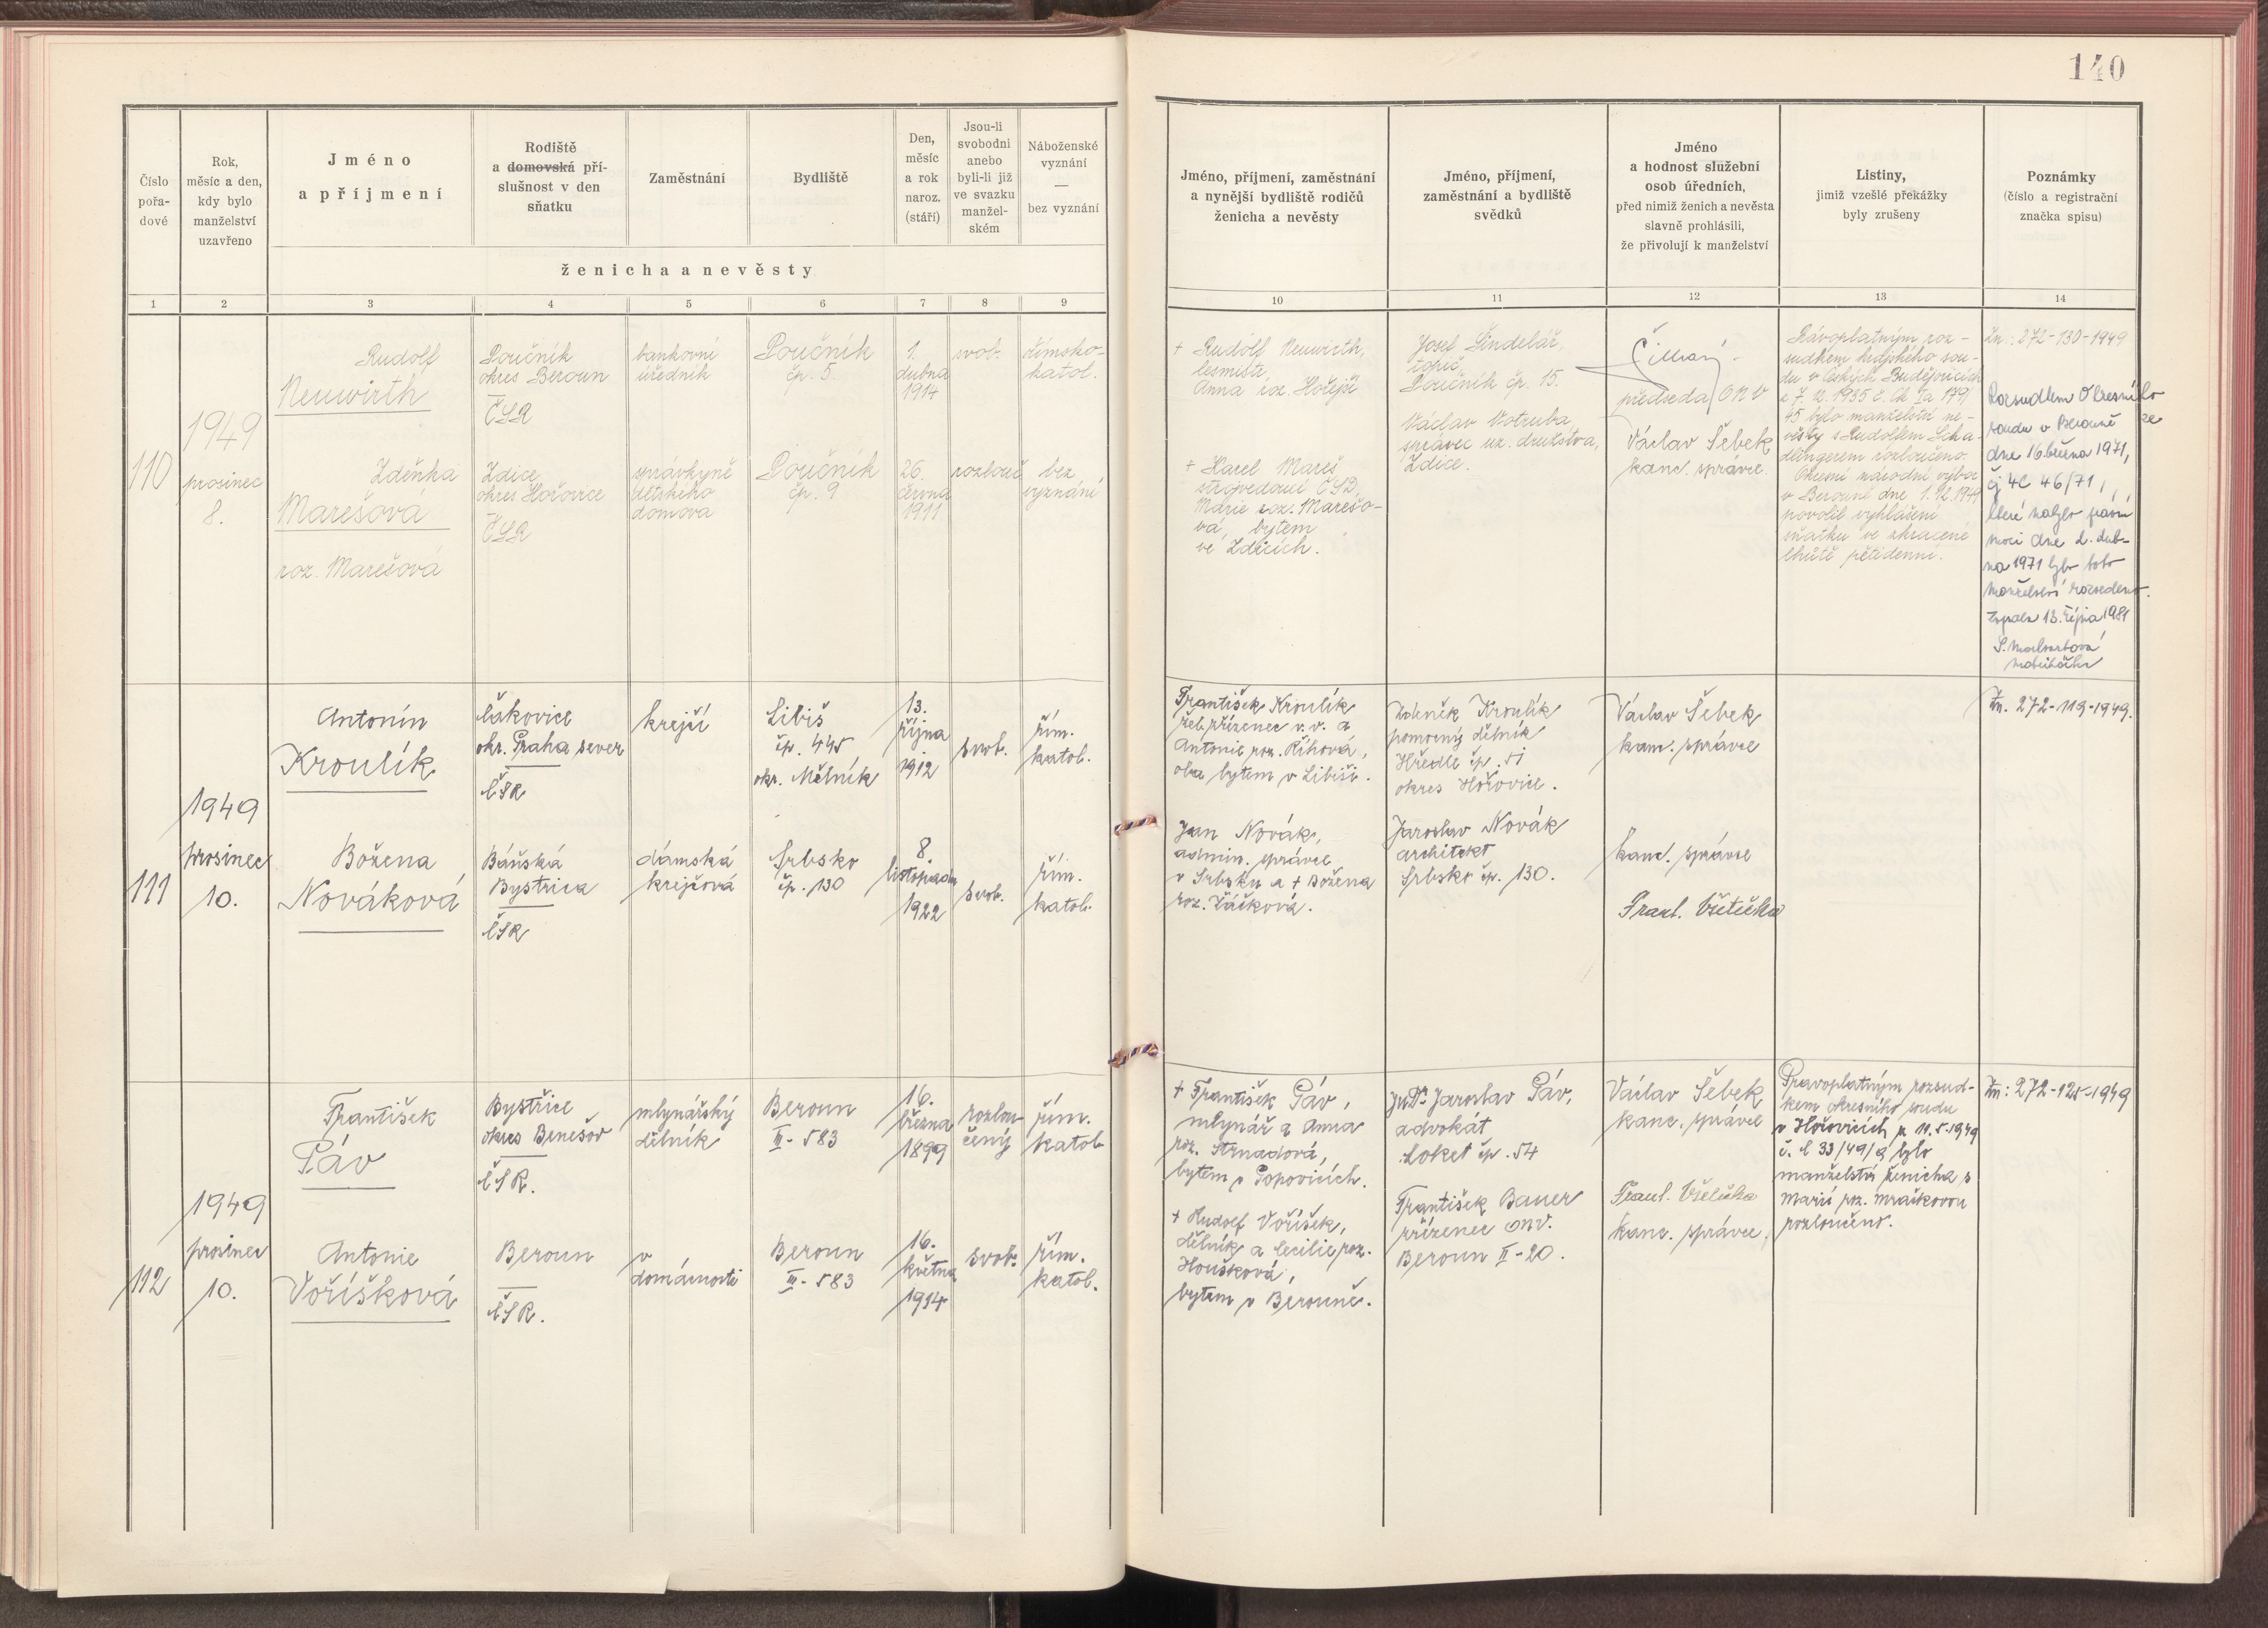 140
Číslo
pořa-
dové
Rok,
měsíc a den,
kdy bylo
manželství
uzavřeno
Jméno
a příjmení
Rodiště
a domovská pří-
slušnost v den
sňatku
Zaměstnání
Bydliště
Den,
měsíc
a rok
naroz.
(stáří)
Jsou-li
svobodni
anebo
byli-li již
ve svazku
manžel-
ském
Náboženské
vyznání
—
bez vyznání
ženicha a nevěsty
Jméno, příjmení, zaměstnání
a nynější bydliště rodičů
ženicha a nevěsty
Jméno, příjmení,
zaměstnání a bydliště
svědků
Jméno
a hodnost služební
osob úředních,
před nimiž ženich a nevěsta
slavně prohlásili,
že přivolují k manželství
Listiny,
jimiž vzešlé překážky
byly zrušeny
Poznámky
(číslo a registrační
značka spisu)
1 2 3 4 5 6 7 8 9 10 11 12 13 14
110
1949
prosinec
8.
Rudolf
Neuwirth
Zdeňka
Marešová
roz. Marešová
Loučník
okres Beroun
ČSR
Zdice
okres Hořovice
ČSR
bankovní
úředník
správkyně
dětského
domova
Loučník
čp. 5.
Loučník
čp. 9
1.
dubna
1914
26.
června
1911
svob.
rozlouč
římsko-
katol.
bez
vyznání
+ Rudolf Neuwirth,
Anna roz. Hořejší
+ Karel Mareš
strojvedoucí ČSD,
Marie roz. Marešo-
vá, bytem
ve Zdicích.
Josef Šindelář,
topič,
Loučník čp. 15.
Václav Votruba,
správce uz. družstva,
Zdice.
předseda ONV
Václav Šebek
kanc. správce.
Právoplatným roz-
sudkem krajského sou-
du v Českých Budějovicích
45 bylo manželství ne-
věsty s Rudolfem Scha-
dlingerem rozloučeno.
Okresní národní výbor
v Berouně dne 1.12.1949
povolil vyhlášení
sňatku ve zkrácené
lhůtě pětidenní.
Zn.: 272-130-1949
Rozsudkem Okresního
soudu v Berouně ze
dne 16. března 1971,
čj 4C 46/71,
které nabylo právní
moci dne 2. dub-
na 1971 bylo toto
manželství rozvedeno.
Zapsala 13. října 1981
matrikářka
111
1949
prosinec
10.
Antonín
Kroulík
Božena
Nováková
Čakovice
okr. Praha sever
ČSR
Báňská
Bystrica
ČSR
krejčí
dámská
krejčová
Libiš
čp. 445
okr. Mělník
Srbsko
čp. 130
13.
října
1912
8.
listopadu
1922
svob.
svob.
řím.
katol.
řím.
katol.
František Kroulík
žel. zřízenec v. v. a
Antonie roz. Říhová,
oba bytem v Libiši.
Jan Novák,
admin. správce
v Srbsku a + Božena
roz. Žáčková.
Zdeněk Kroulík
pomocný dělník
Hředle čp. 51
okres Hořovice.
Jaroslav Novák
architekt
Srbsko čp. 130.
Václav Šebek
kanc. správce
kanc. správce
Frant. Všetečka
Zn. 272-119-1949.
112
1949
prosinec
10.
František
Páv
Antonie
Voříšková
Bystřice
okres Benešov
ČSR.
Beroun
ČSR.
mlynářský
dělník
v
domácnosti
Beroun
III-583
Beroun
III-583
16.
března
1899
16.
května
1914
rozlou-
čený
svob.
řím.
katol.
řím.
katol.
+ František Páv,
mlynář a Anna
roz. Strnadová,
bytem v Popovicích.
+ Rudolf Voříšek,
dělník a Cecilie roz.
Houšková,
bytem v Berouně.
JUDr. Jaroslav Páv,
advokát
Loket čp. 54
František Bauer
zřízenec ONV.
Beroun II-20.
Václav Šebek
kanc. správce
Frant. Všetečka
kanc. správce.
Pravoplatným rozsud-
kem okresního soudu
v Hořovicích z 10.5.1949
č. C 33/49/9 bylo
manželství ženicha s
Marií roz. Mračkovou
rozloučeno.
Zn: 272-125-1949